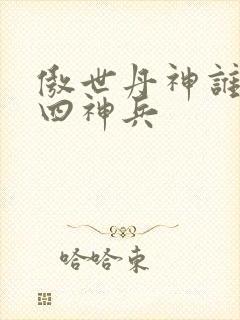 傲世丹神誰
四神兵
哈哈東